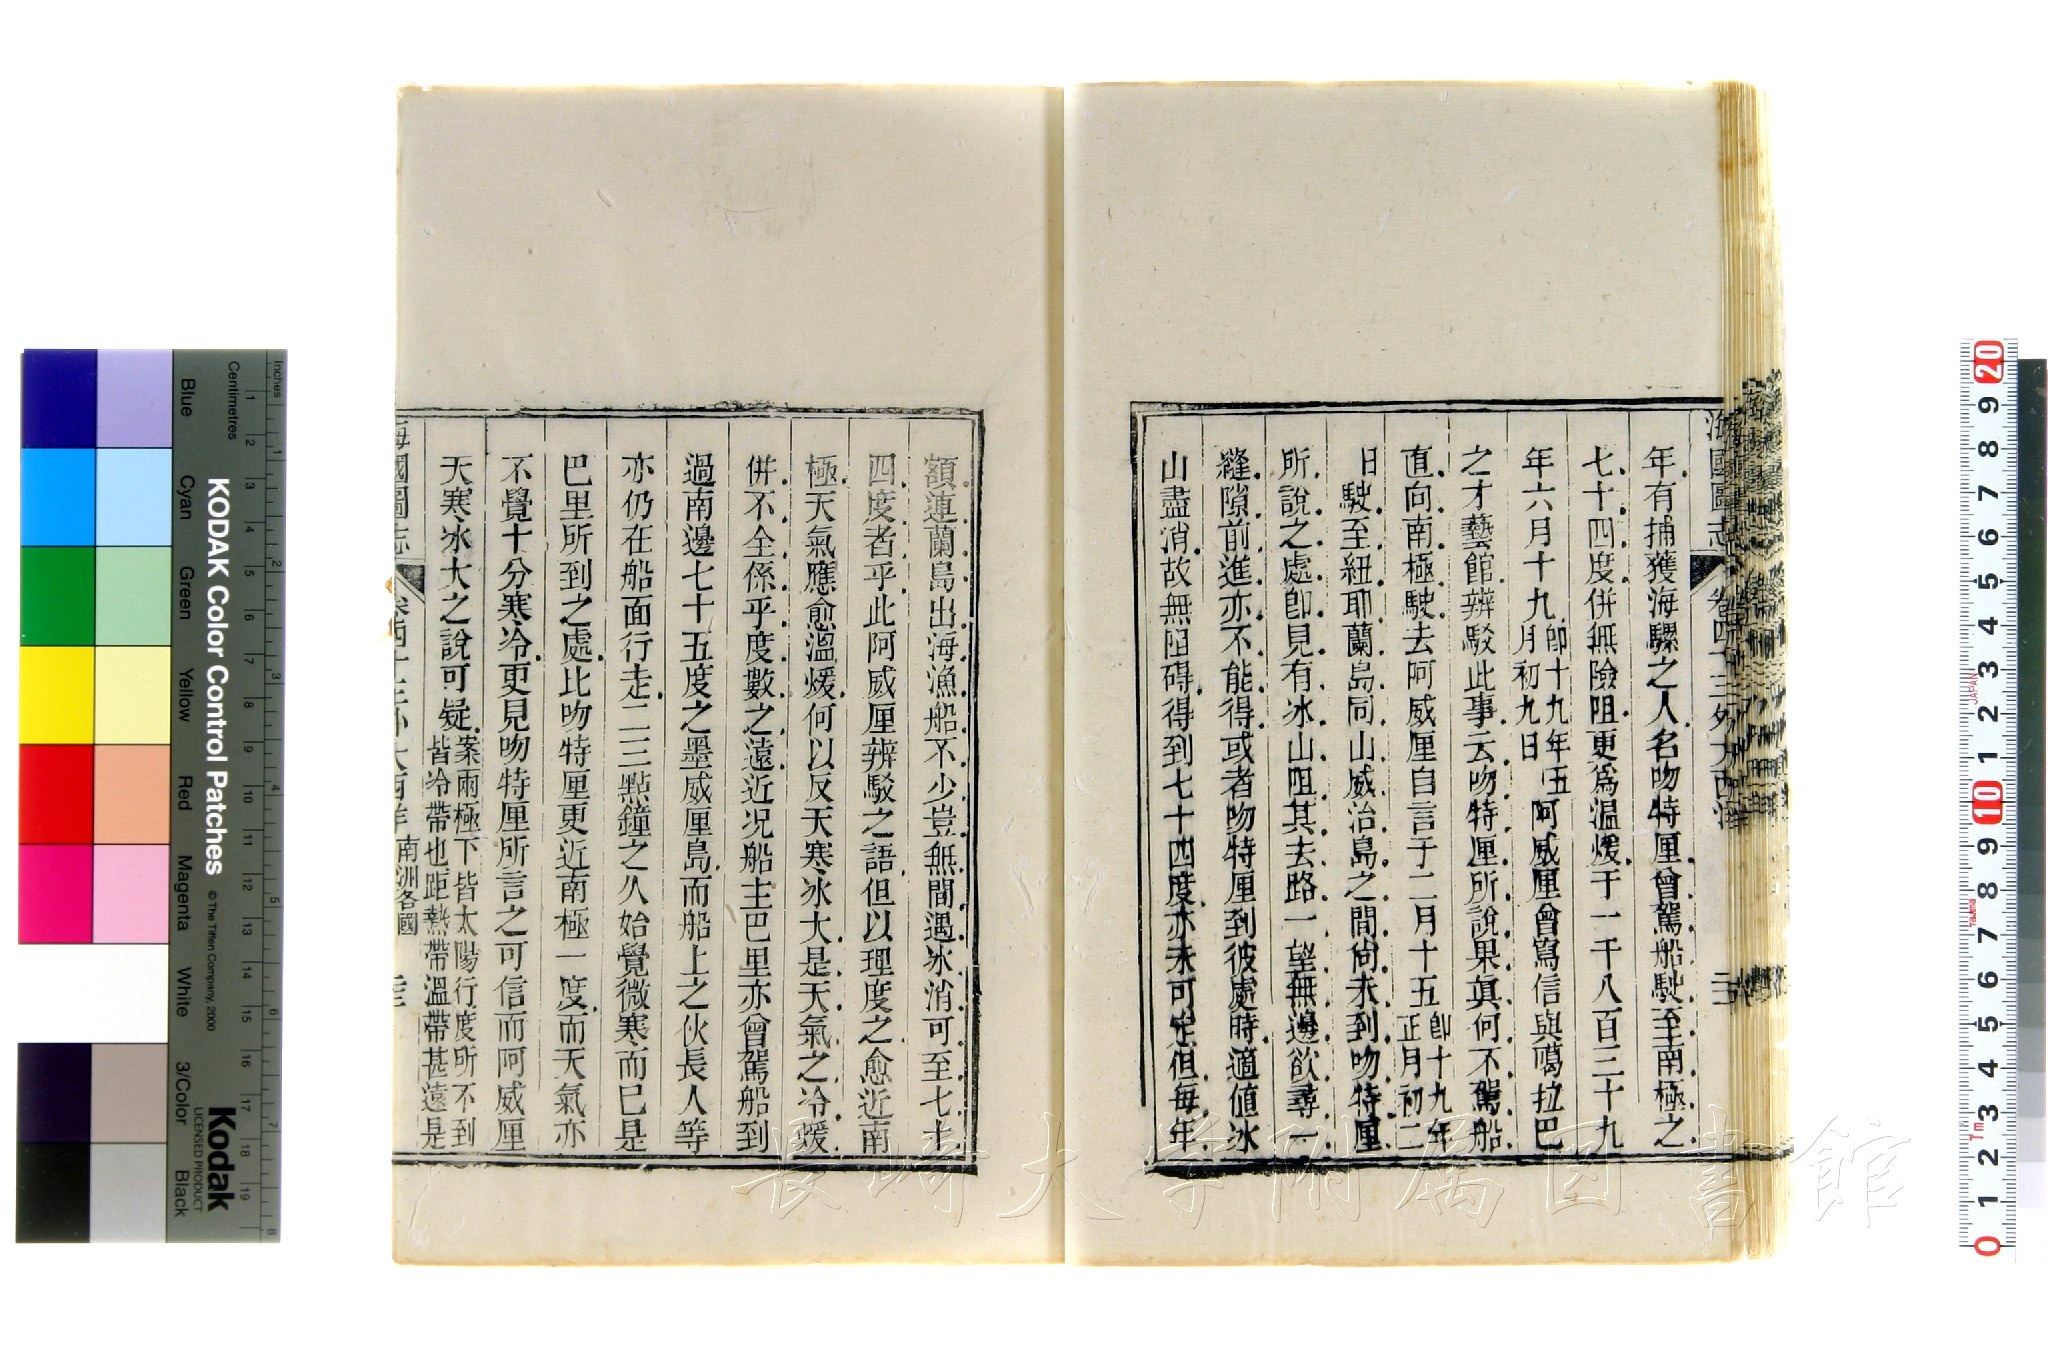 年有捕獲海騾之人名吻特厘曾駕船駛至南極之
七十四度併無險阻更爲温煖于一千八百三十九
年六月十九卽十九年五月初九日阿威厘曾寫信與噶拉巴
之才藝館辨駁此事云吻特厘所說果眞何不駕船
直向南極駛去阿威厘自言于二月十五卽十九年正月初二
日駛至紐耶蘭島同山威治島之間尙未到吻特厘
所說之處卽見有冰山阻其去路一望無邊欲尋一
縫隙前進亦不能得或者吻特厘到彼處時適値冰
山盡消故無阻碍得到七十四度亦未可定但每年
額連蘭島出海漁船不少豈無間遇冰消可至七十
四度者乎此阿威厘辨駁之語但以理度之愈近南
極天氣應愈溫煖何以反天寒冰大是天氣之冷煖
併不全係乎度數之遠近况船主巴里亦曾駕船到
過南邊七十五度之墨威厘島而船上之伙長人等
亦仍在船面行走二三點鐘之久始覺微寒而已是
巴里所到之處比吻特厘更近南極一度而天氣亦
不覺十分寒冷更見吻特厘所言之可信而阿威厘
天寒冰大之說可疑案兩極下皆太陽行度所不到皆冷帶也距熱帶溫帶甚遠是
海國圖志 卷四十三外大西洋 南洲各國
KODAK Color Control Patches
© The Tiffen Company, 2000
Kodak
LICENSED PRODUCT
Inches
Centimetres
Blue
Cyan
Green
Yellow
Red
Magenta
White
3/Color
Black
1 2 3 4 5 6 7 8 9 10 11 12 13 14 15 16 17 18 19
1 2 3 4 5 6 7 8
20 9 8 7 6 5 4 3 2 1 10 9 8 7 6 5 4 3 2 1 0
JAPAN
長崎大学附属図書館